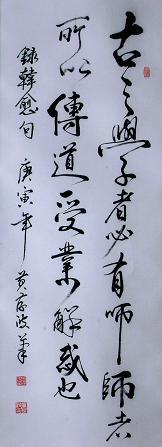 古之學者必有师師者
所以傳道受業解惑也
錄韓愈句 庚寅年 黄 波